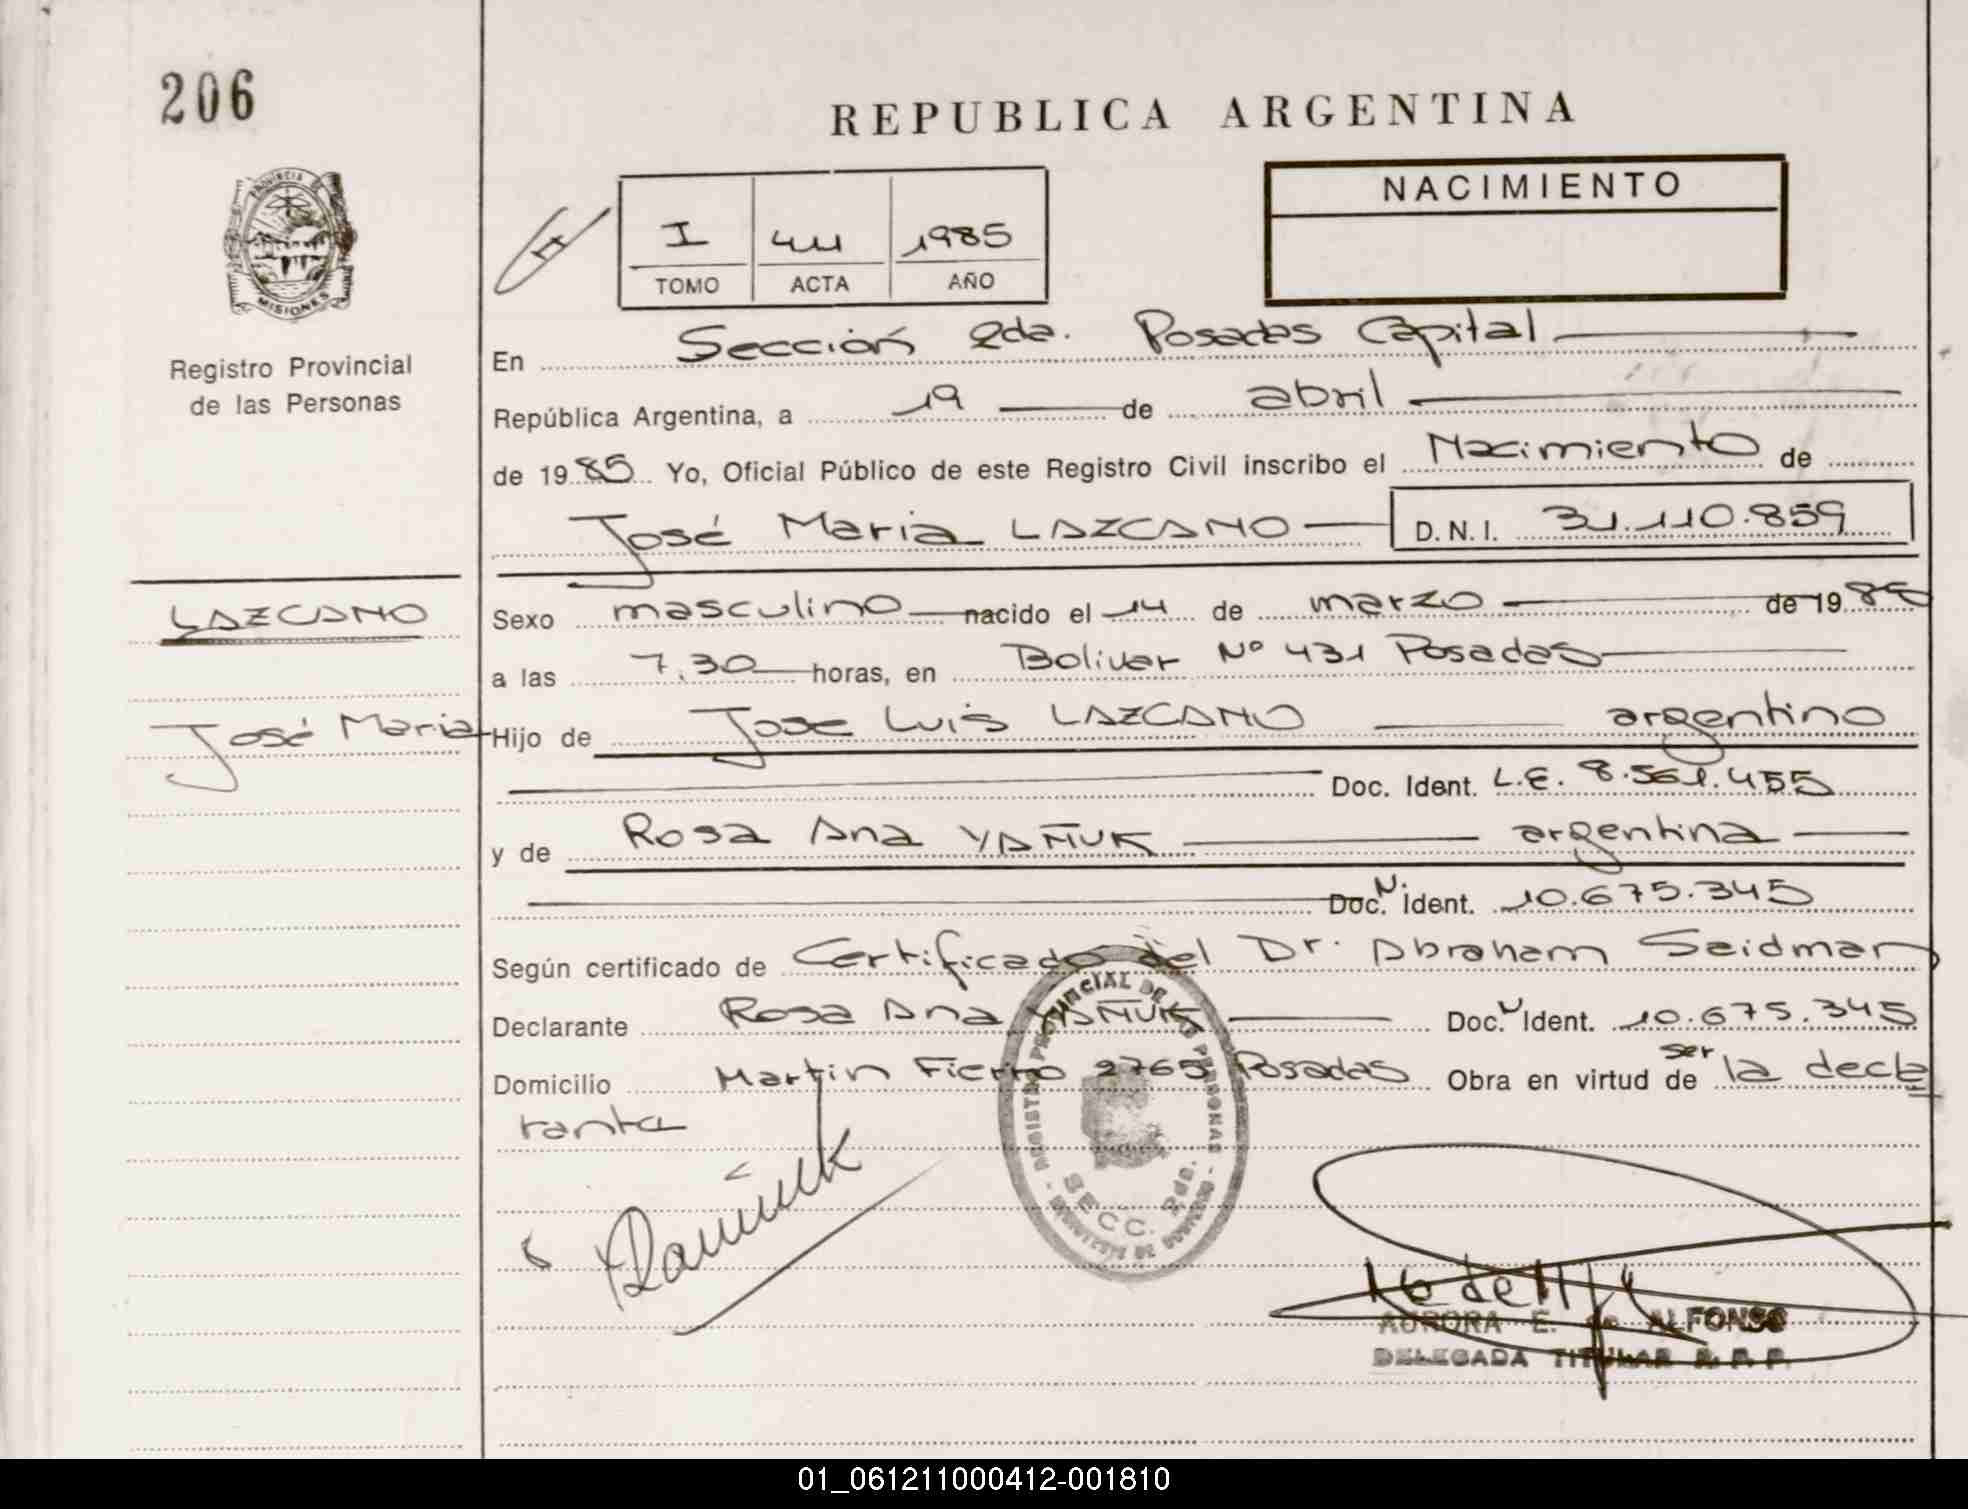 206
REPUBLICA ARGENTINA
PROVINCIA DE
MISIONES
Registro Provincial
de las Personas
NACIMIENTO
I 411 1985
TOMO ACTA AÑO
En Sección 2da. Posadas Capital
República Argentina, a 19 de abril
de 1985 Yo, Oficial Público de este Registro Civil inscribo el Nacimiento de
José Maria LAZCANO D.N.I. 31.110.859
LAZCANO
José Maria
Sexo masculino nacido el 14 de marzo de 1985
a las 7,30 horas, en Bolivar Nº 431 Posadas
Hijo de Jose Luis LAZCANO argentino
Doc. Ident. L.E. 8.561.455
y de Rosa Ana YAÑUK argentina
Doc. N. Ident. 10.675.345
Según certificado de Certificado del Dr. Abraham Seidman
Declarante Rosa Ana YAÑUK Doc. N Ident. 10.675.345
Domicilio Martin Fierro 2765 Posadas Obra en virtud de ser la decla
rante
REGISTRO PROVINCIAL DE LAS PERSONAS
SECC. 2da.
AURORA E. de ALFONSO
DELEGADA TITULAR R. P. P.
01_061211000412-001810